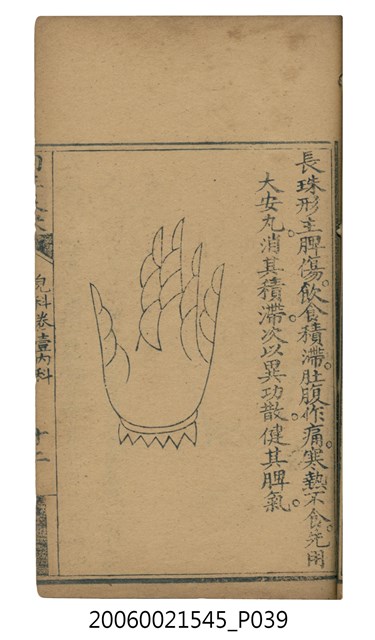 長珠形主脾傷。飲食積滯。肚腹作痛。寒熱不食。先用
大安丸。消其積滯。次以異功散。健其脾氣。
兒科卷壹內科
十二
20060021545_P039